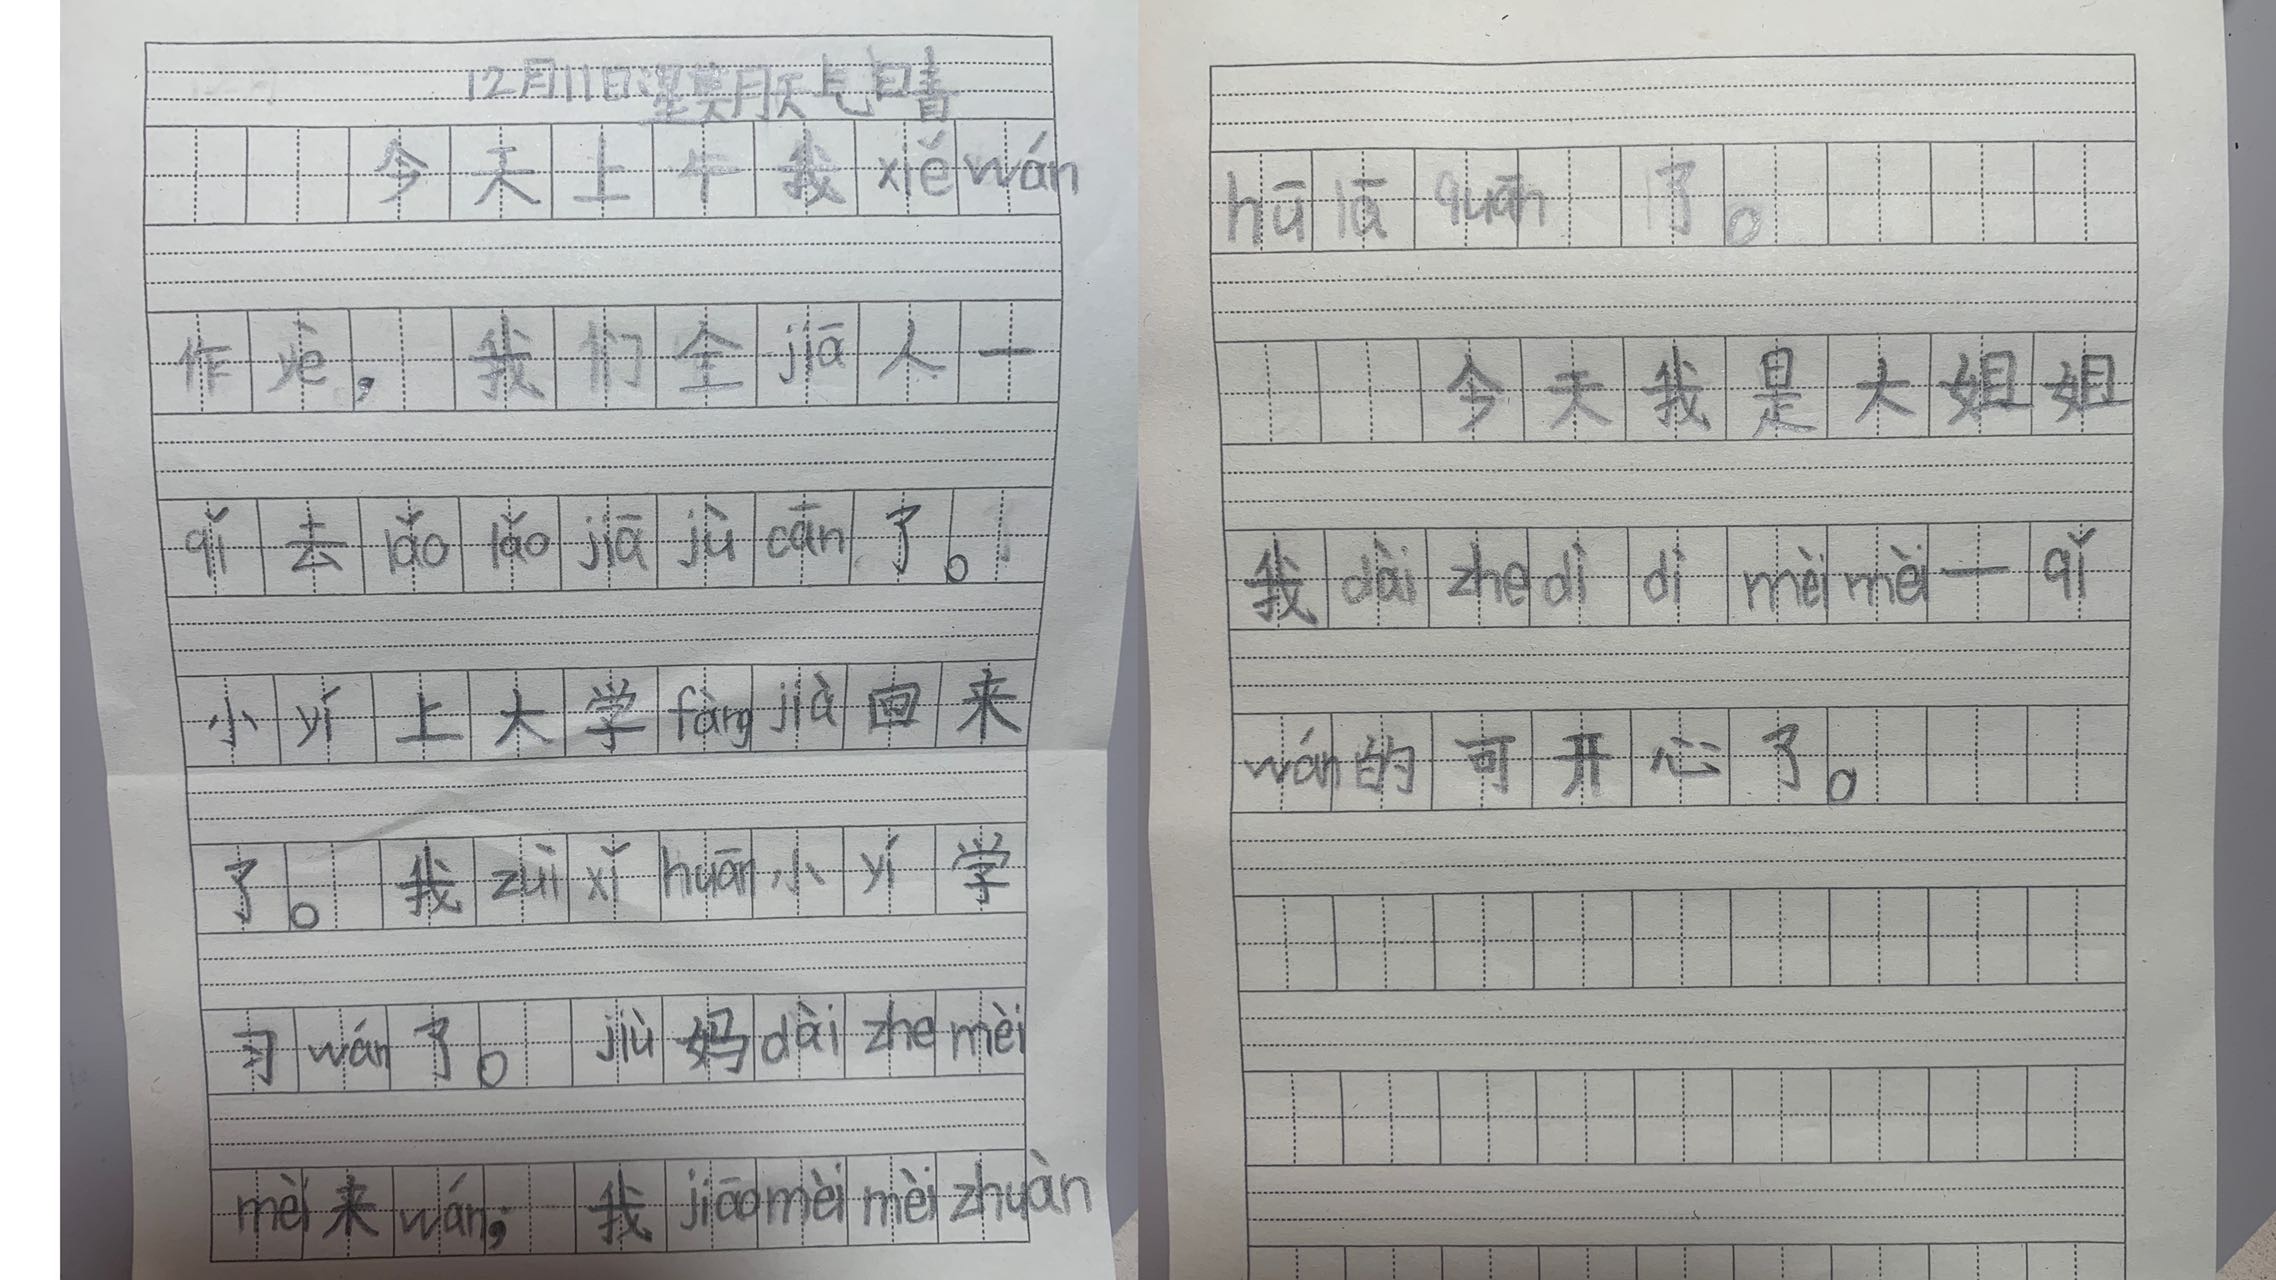 12月11日星期天气晴
今天上午我xiě wán
作yè，我们全jiā人一
qǐ去lǎo lǎo jiā jù cān了。
小yí上大学fàng jià回来
了。我zuì xǐ huān小yí学
习wán了。jiù妈dài zhe mèi
mèi来wán，我jiāo mèi mèi zhuàn
hū lā quān了。
今天我是大姐姐
我dài zhe dì di mèi mèi一qǐ
wán的可开心了。